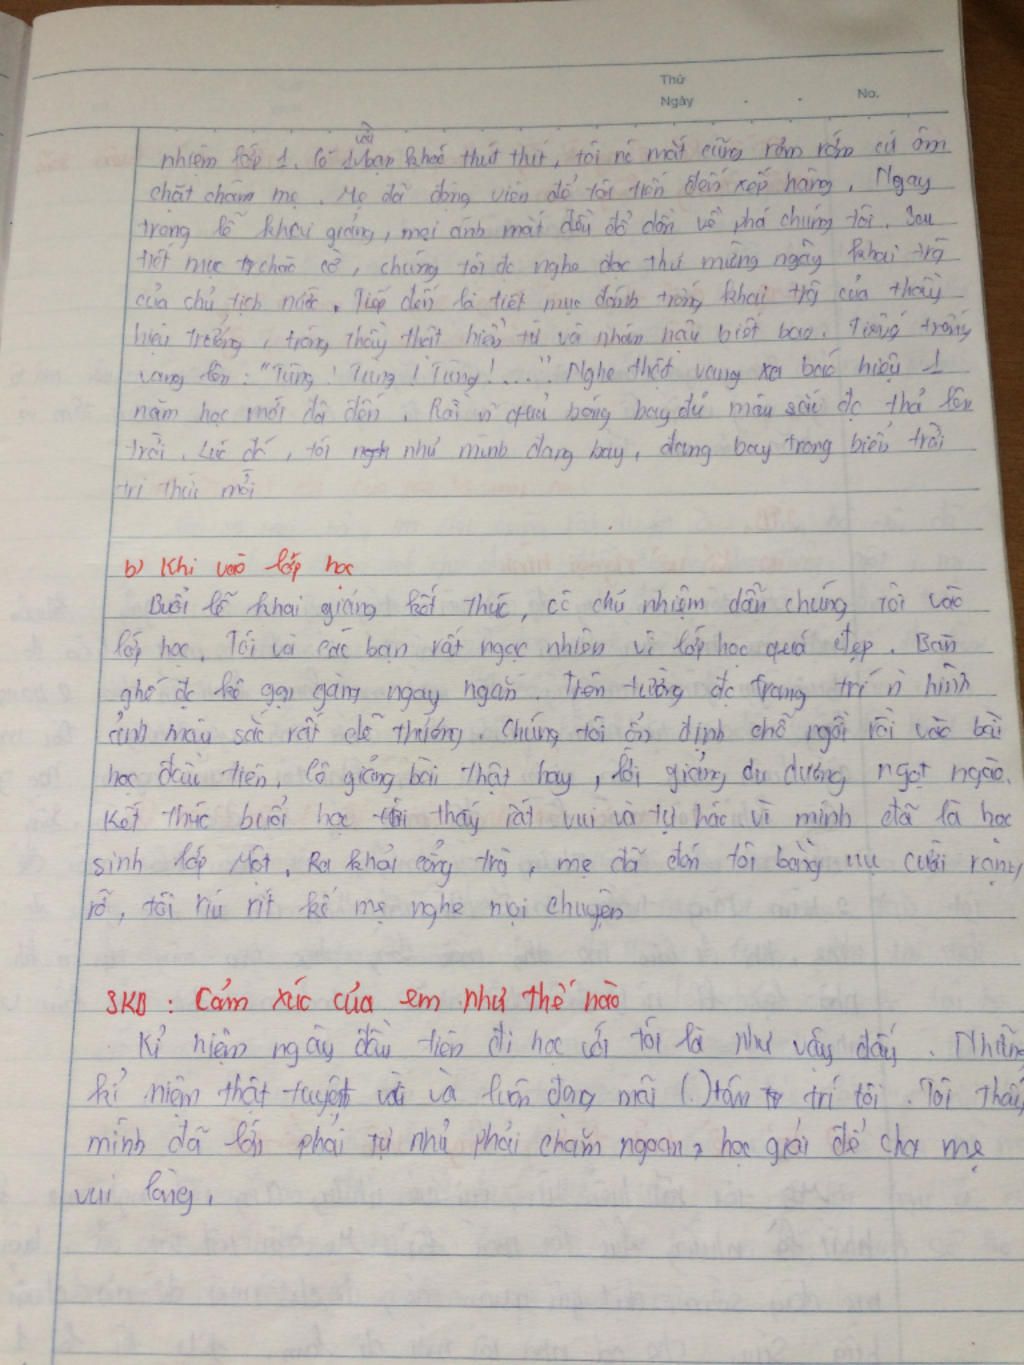 Thứ
Ngày . . No.
vài
nhiệm lớp 1. Có bạn khóc thút thít, tôi nc mắt cũng rơm rớm cứ ôm
chặt chầm mẹ. Mẹ đã động viên để tôi tiến đến xếp hàng. Ngay
trong lễ khai giảng, mọi ánh mắt đều đổ dồn về phá chúng tôi. Sau
tiết mục chào cờ, chúng tôi đc nghe đọc thư mừng ngày khai trg
của chủ tịch nước. Tiếp đến là tiết mục đánh trống khai trg của thầy
hiệu trưởng, trông thầy thật hiền từ và nhân hậu biết bao. Tiếng trống
vang lên: "Tùng! Tùng! Tùng!...." Nghe thật vang xa báo hiệu 1
năm học mới đã đến. Rồi n quả bóng bay đủ màu sắc đc thả lên
trời. Lúc đó, tôi như mình đang bay, đang bay trong biển trời
tri thức mới
b) Khi vào lớp học
Buổi lễ khai giảng kết thúc, cô chủ nhiệm dẫn chúng tôi vào
lớp học. Tôi và các bạn rất ngạc nhiên vì lớp học quá đẹp. Bàn
ghế đc kê gọn gàng ngay ngắn. Trên tường đc trang trí n hình
ảnh màu sắc rất dễ thương. Chúng tôi ổn định chỗ ngồi rồi vào bài
học đầu tiên. Cô giảng bài thật hay, lời giảng du dương ngọt ngào.
Kết thúc buổi học tôi thấy rất vui và tự hào vì mình đã là học
sinh lớp Một. Ra khỏi cổng trg, mẹ đã đón tôi bằng nụ cười rạng
rỡ, tôi ríu rít kể mẹ nghe mọi chuyện
3KB: Cảm xúc của em như thế nào
Kỉ niệm ngày đầu tiên đi học với tôi là như vậy đấy. Những
kỉ niệm thật tuyệt vời và luôn đọng mãi (.) tâm trí tôi. Tôi thấy
mình đã lớn phải tự nhủ phải chăm ngoan, học giỏi để cha mẹ
vui lòng.